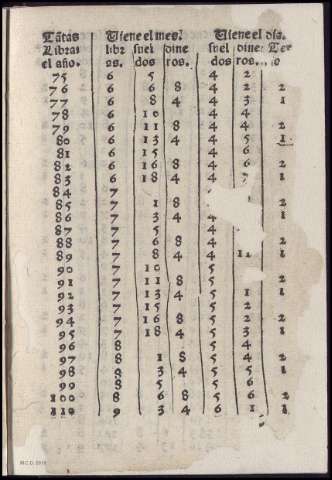 Tãtas Viene el mes. Viene el dia.
Libras libr suel dine suel dine Ter
el año. as. dos ros. dos ros. o
75 6 5 4 2
76 6 6 8 4 2 2
77 6 8 4 4 3 1
78 6 10 4 4
79 6 11 8 4 4 2
80 6 13 4 4 5 1
81 6 15 4
82 6 16 8 4 6 2
83 6 18 4 4 7 1
84 7 4
85 7 1 8 2
86 7 3 4 4 1
87 7 5 4
88 7 6 8 4 2
89 7 8 4 4 11 1
90 7 10 5
91 7 11 8 5 2
92 7 13 4 5 1 1
93 7 15 5 2
94 7 16 8 5 2 2
95 7 18 4 5 3 1
96 8 5 4
97 8 1 8 5 4 2
98 8 3 4 5 5 1
99 8 5 5 6
100 8 6 8 5 6 2
110 9 3 4 6 1 1